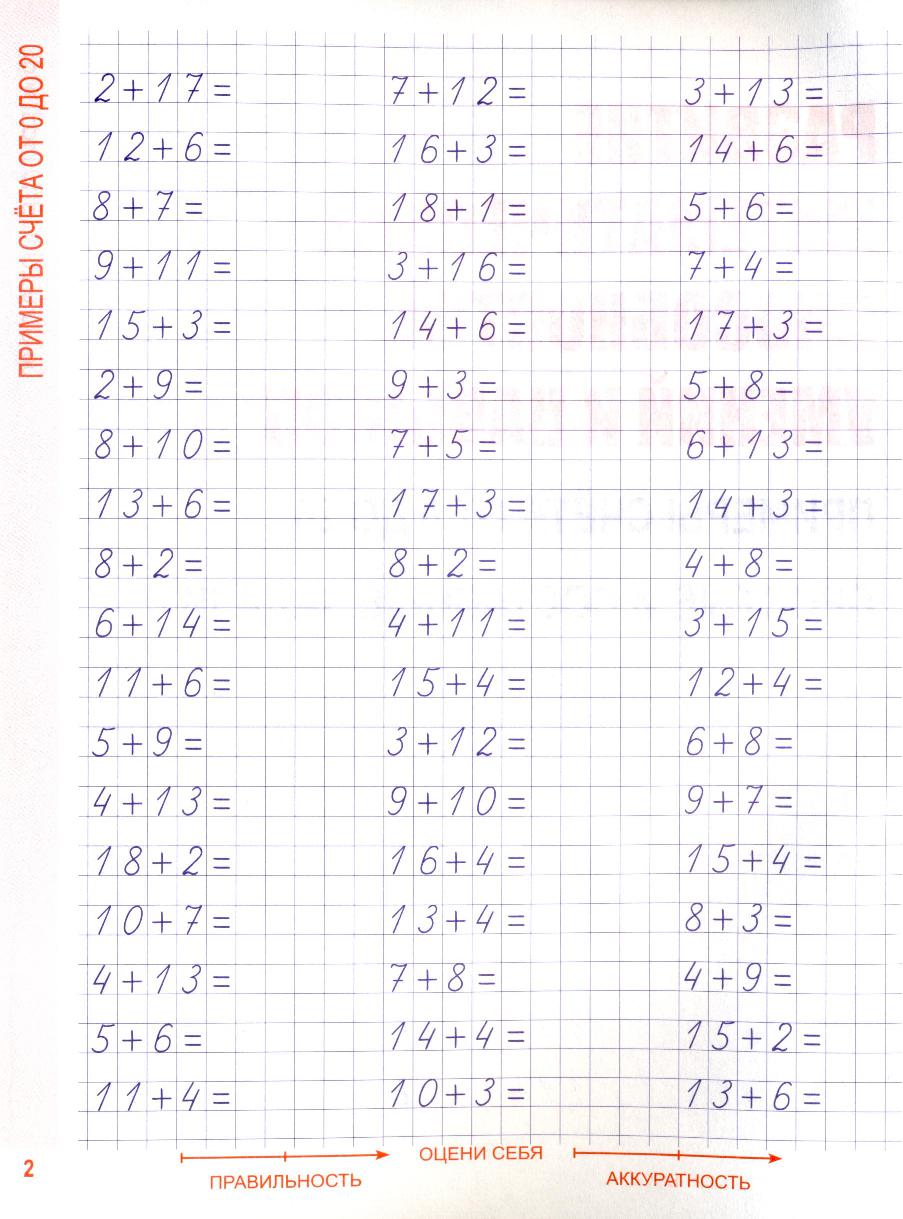 ПРИМЕРЫ СЧЁТА ОТ 0 ДО 20
2+17= 7+12= 3+13=
12+6= 16+3= 14+6=
8+7= 18+1= 5+6=
9+11= 3+16= 7+4=
15+3= 14+6= 17+3=
2+9= 9+3= 5+8=
8+10= 7+5= 6+13=
13+6= 17+3= 14+3=
8+2= 8+2= 4+8=
6+14= 4+11= 3+15=
11+6= 15+4= 12+4=
5+9= 3+12= 6+8=
4+13= 9+10= 9+7=
18+2= 16+4= 15+4=
10+7= 13+4= 8+3=
4+13= 7+8= 4+9=
5+6= 14+4= 15+2=
11+4= 10+3= 13+6=
ОЦЕНИ СЕБЯ
ПРАВИЛЬНОСТЬ АККУРАТНОСТЬ
2